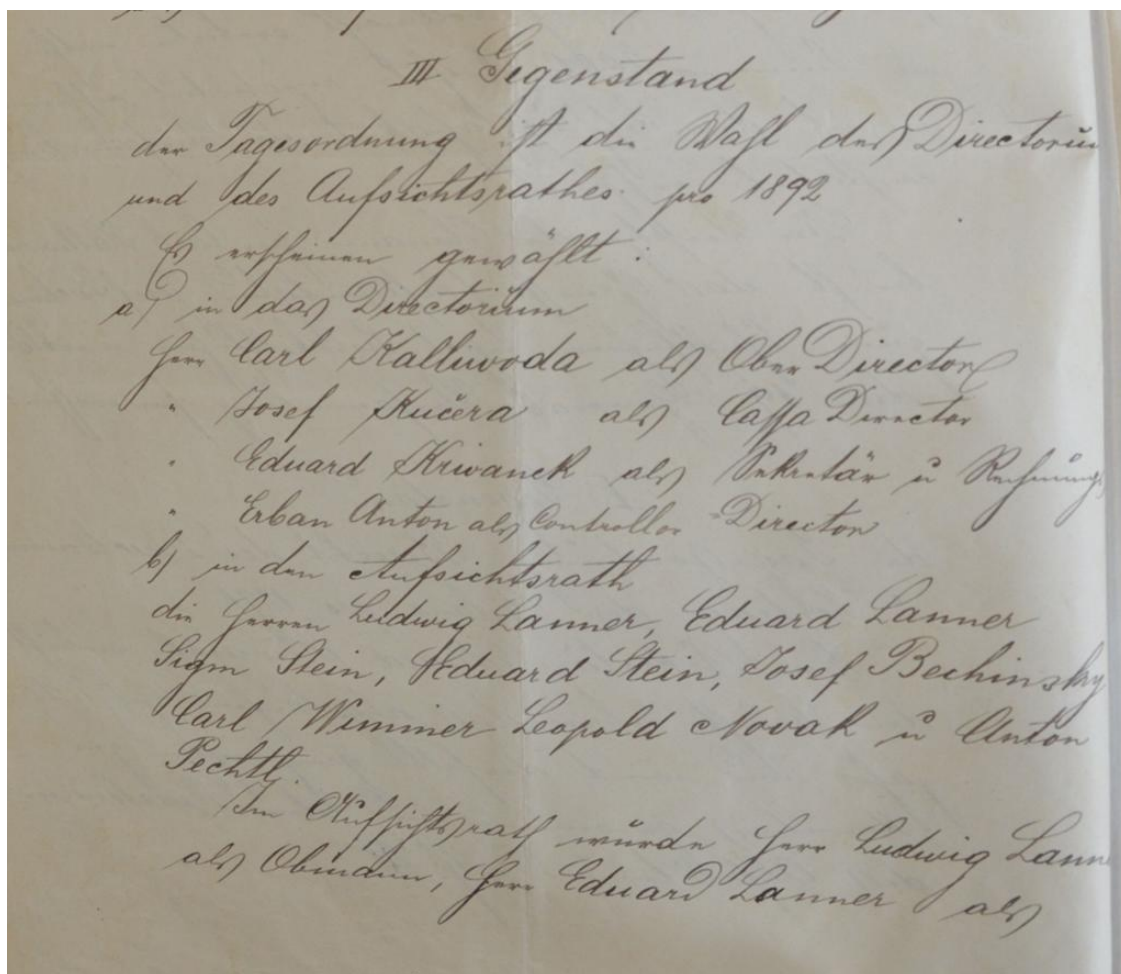 III Gegenstand
der Tagesordnung ist die Wahl des Directoriu
und des Aufsichtsrathes pro 1892
Es erscheinen gewählt :
a) in das Directorium
Herr Carl Kalliwoda als Ober Director
" Josef Kučera als Cassa Director
" Eduard Kriwanek als Sekretär u Rechnungs
" Erban Anton als Controllor-Director
b) in den Aufsichtsrath
die Herren Ludwig Lanner, Eduard Lanner
Sigm Stein, Eduard Stein, Josef Bechinsky
Carl Wimmer Leopold Novak u Anton
Pechtl.
Im Aufsichtsrath wurde Herr Ludwig Lann
als Obmann, Herr Eduard Lanner als